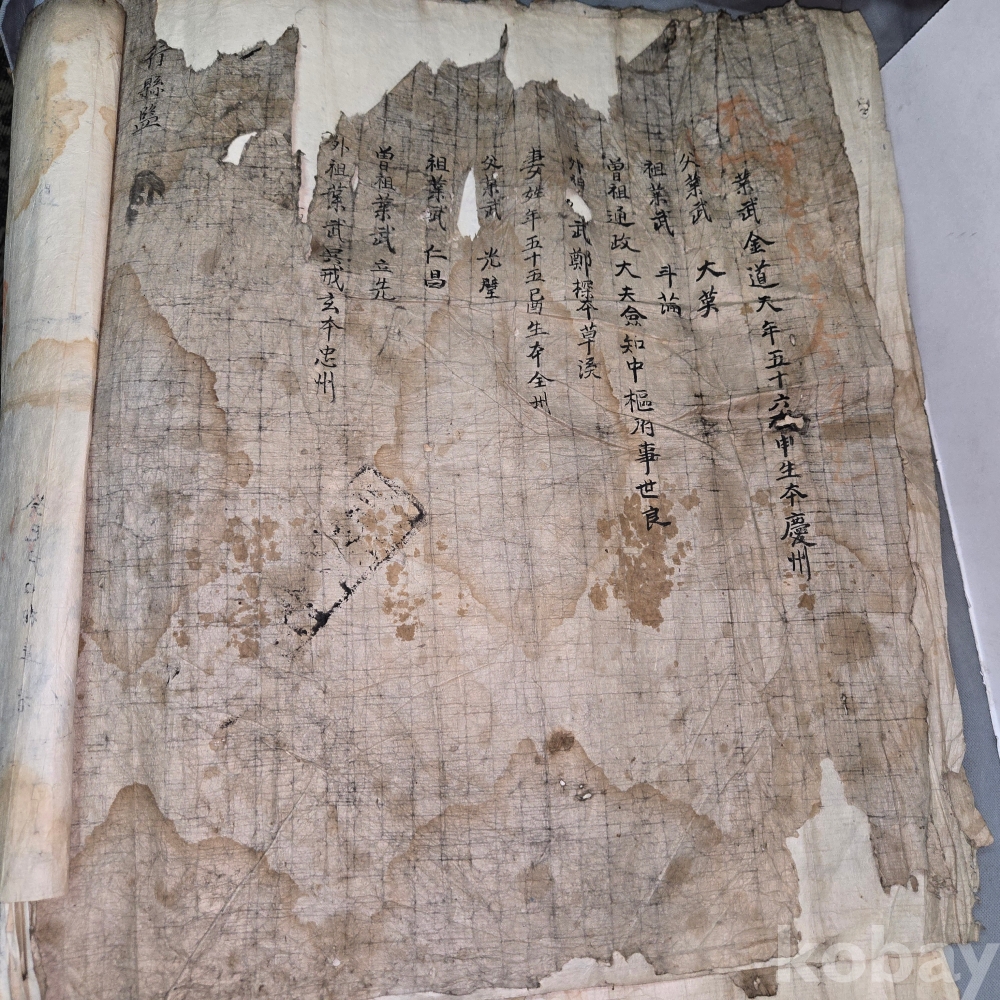 業武金道天年五十六 申生本慶州
父業武 大英
祖業武 斗
曾祖通政大夫僉知中樞府事世良
外 武鄭 本草溪
妻姓年五十五己酉生本全州
父業武 光璧
祖業武 仁昌
曾祖業武立先
外祖業武 玄本忠州
行縣監
kobay